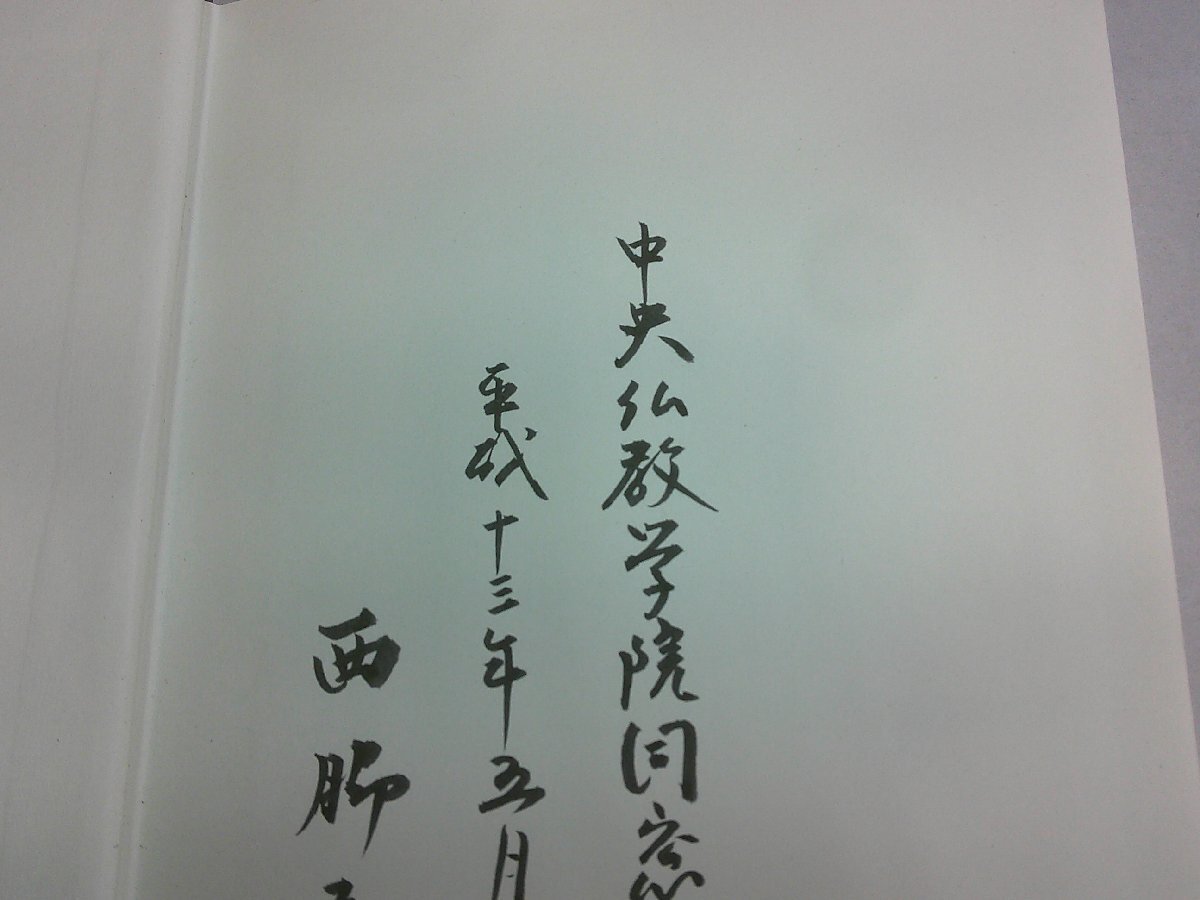 中央仏教学院同窓
平成十三年五月
西脚